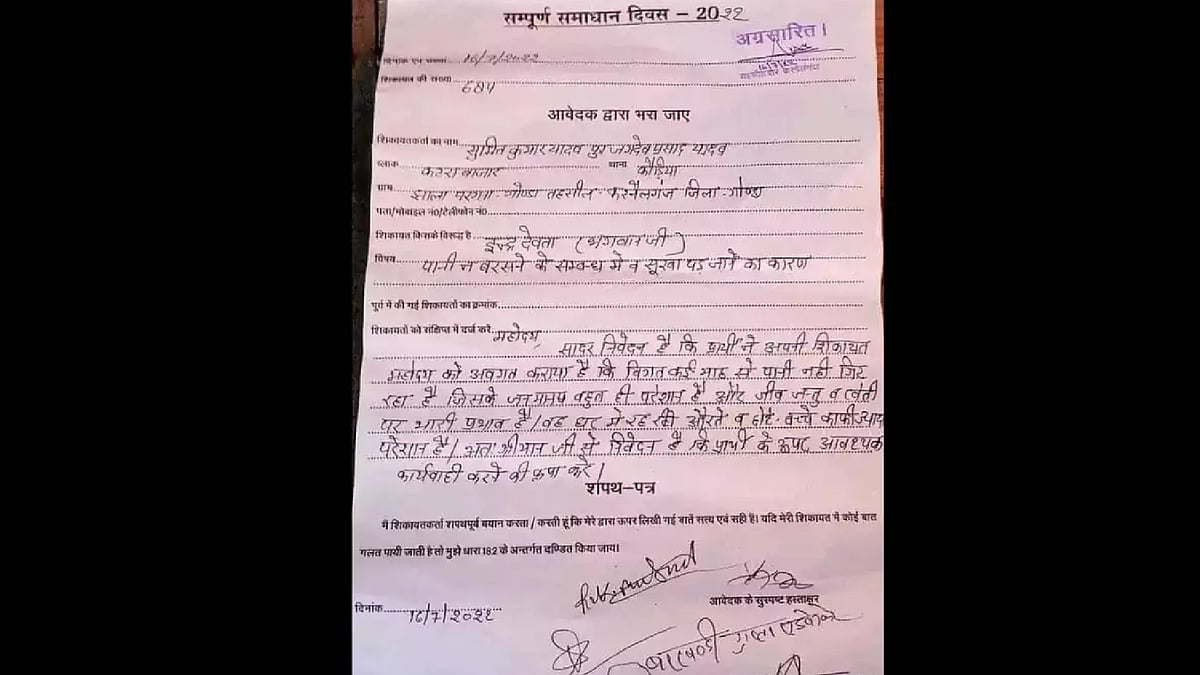 सम्पूर्ण समाधान दिवस – 20२२
अग्रसारित।
दिनांक एवं संख्या 16/7/२०२२
शिकायत की संख्या
आवेदक द्वारा भरा जाए
शिकायतकर्ता का नाम सुमित कुमार यादव पुत्र जगदेव प्रसाद यादव
ब्लाक कटरा बाजार थाना कौड़िया
ग्राम झाला परगना गोण्डा तहसील- करनैलगंज जिला-गोण्डा
पता/मोबाइल नं0/टेलीफोन नं0
शिकायत किसके विरूद्ध है इन्द्र देवता (भगवान जी)
विषय पानी न बरसने के सम्बन्ध में व सूखा पड़ जाने का कारण
पूर्व में की गई शिकायतों का क्रमांक
शिकायतों को संक्षिप्त में दर्ज करें महोदय,
सादर निवेदन है कि प्रार्थी ने अपनी शिकायत
महोदय को अवगत कराया है कि विगत कई माह से पानी नही गिर
रहा है जिसके जनमानस बहुत ही परेशान है और जीव जन्तु व खेती
पर भारी प्रभाव है। वह घर में रह रही औरते व छोटे-बच्चे काफी
परेशान है। अतः श्रीमान जी से निवेदन है कि प्रार्थी के ऊपर आवश्यक
कार्यवाही करने की कृपा करें।
शपथ–पत्र
मैं शिकायतकर्ता शपथपूर्व बयान करता / करती हूं कि मेरे द्वारा ऊपर लिखी गई बातें सत्य एवं सही है। यदि मेरी शिकायत में कोई बात
गलत पायी जाती है तो मुझे धारा 182 के अन्तर्गत दण्डित किया जाय।
आवेदक के सुस्पष्ट हस्ताक्षर
दिनांक 16/7/२०२२
गुप्ता एडवोकेट